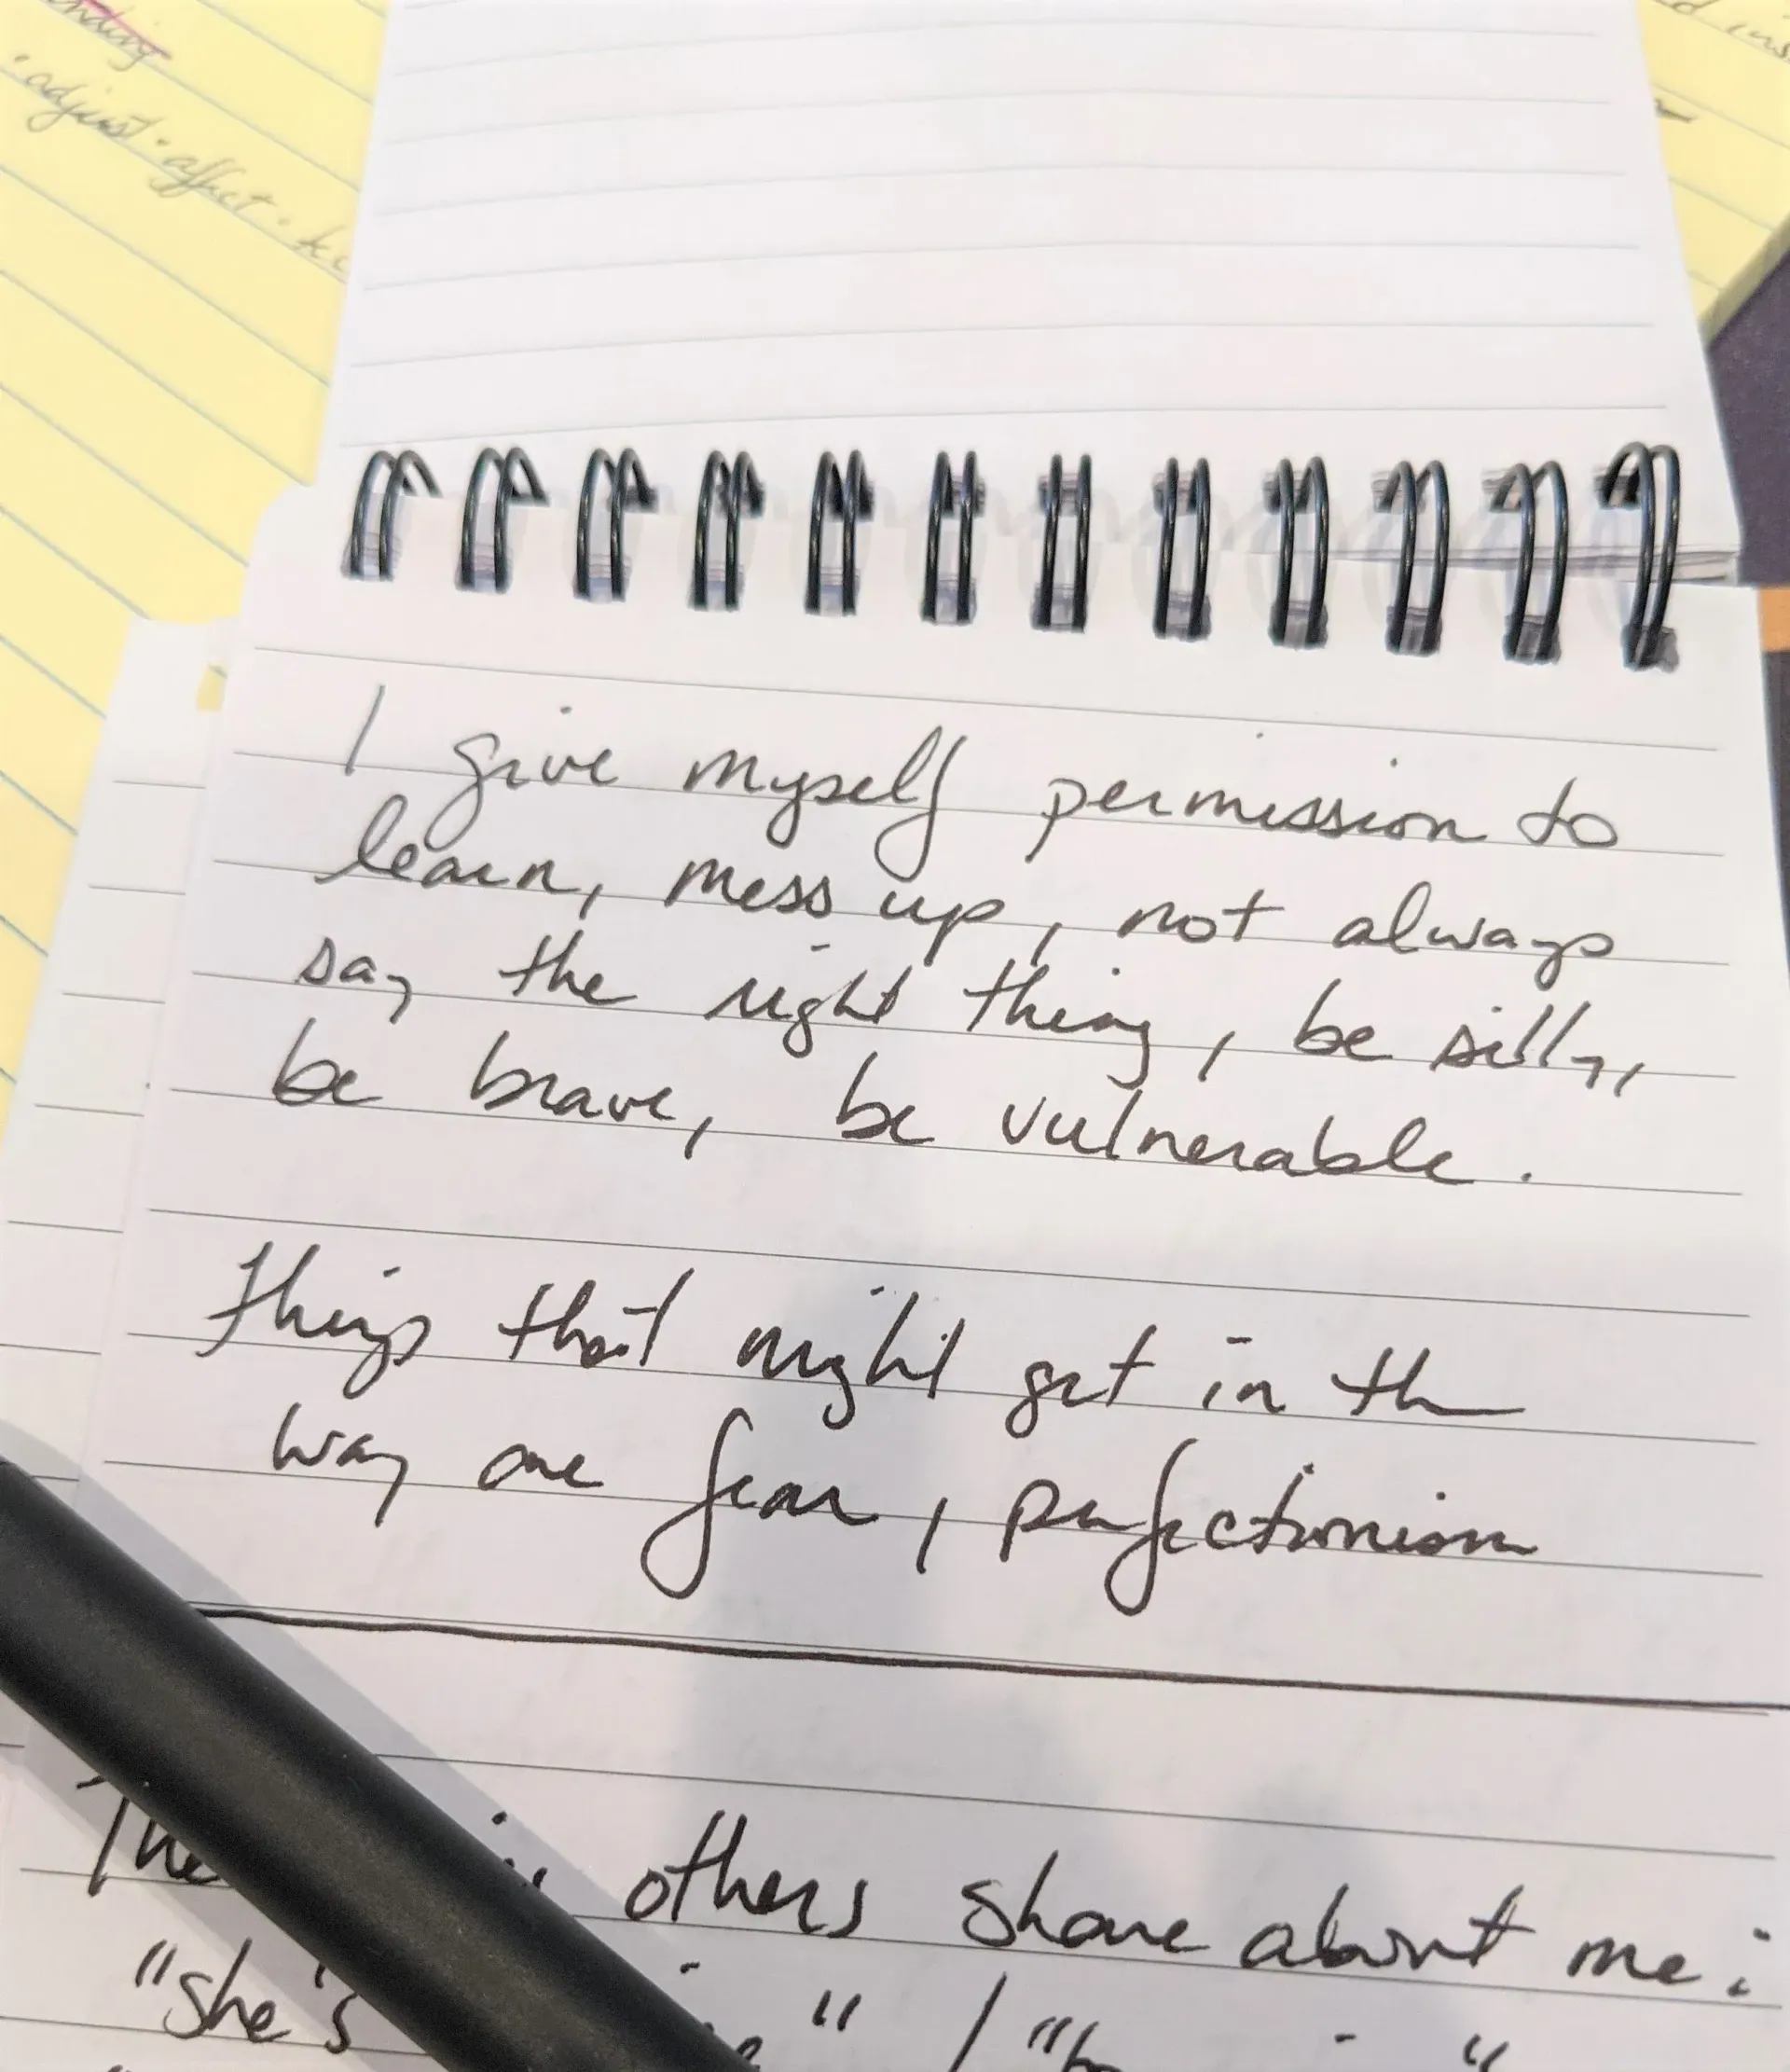 adjust · affect ·
I give myself permission to
learn, mess up, not always
say the right thing, be silly,
be brave, be vulnerable.
Things that might get in the
way are fear, perfectionism
others share about me:
"she's " / "